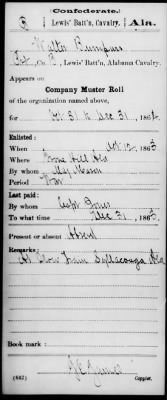 (Confederate.)
Lewis' Batt'n, Cavalry. Ala.
Walter Bumpus
Lewis' Batt'n, Alabama Cavalry.
Appears on
Company Muster Roll
of the organization named above,
for Oct 31 to Dec 31, 186
Enlisted:
When Oct 12, 1863
Where Hill Ala
By whom Maj Mason
Period War
Last paid:
By whom Capt
To what time Dec 31, 1863
Present or absent Absent
Remarks:
At Home Sylacauga Ala
Book mark:
(642) Copyist.